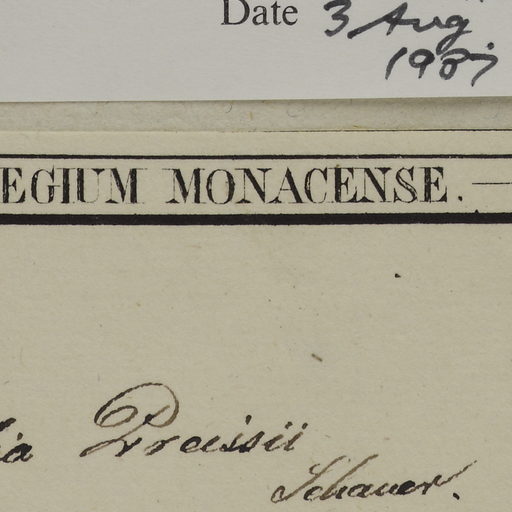 Date 3 Aug
1987
EGIUM MONACENSE. —
ia Preissii
Schauer.